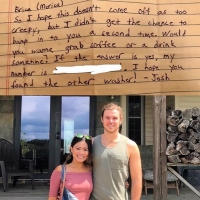 Erica (Merica)
So I hope this doesn't come off as too
creepy, but I didn't get the chance to
bump in to you a second time. Would
you wanna grab coffee or a drink
sometime? If the answer is yes, my
number is I hope you
found the other washer! - Josh